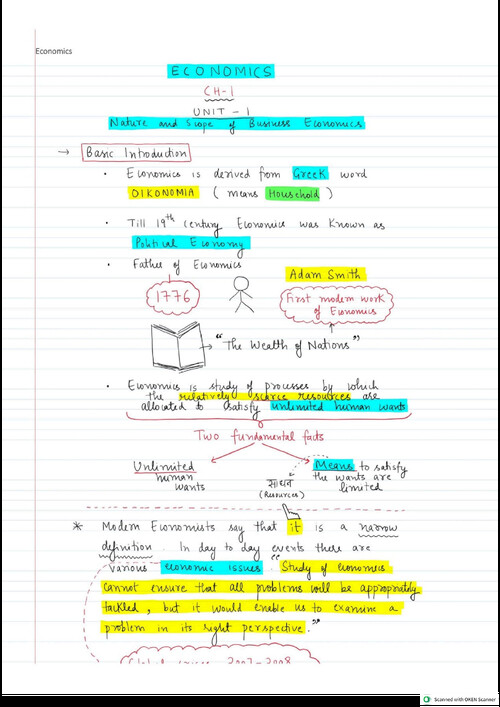 Economics
ECONOMICS
CH-1
UNIT - 1
Nature and Scope of Business Economics
→ Basic Introduction
· Economics is derived from Greek word
OIKONOMIA ( means Household )
· Till 19th century Economics was known as
Political Economy
· Father of Economics
Adam Smith
1776
First modern work
of Economics
→ "The Wealth of Nations"
· Economics is study of processes by which
the relatively scarce resources are
allocated to satisfy unlimited human wants
Two fundamental facts
Unlimited
human
wants
Means to satisfy
the wants are
limited
साधन
(Resources)
* Modern Economists say that it is a narrow
definition. In day to day events there are
various economic issues. "Study of economics
cannot ensure that all problems will be appropriately
tackled, but it would enable us to examine a
problem in its right perspective."
2007-2008
Scanned with OKEN Scanner